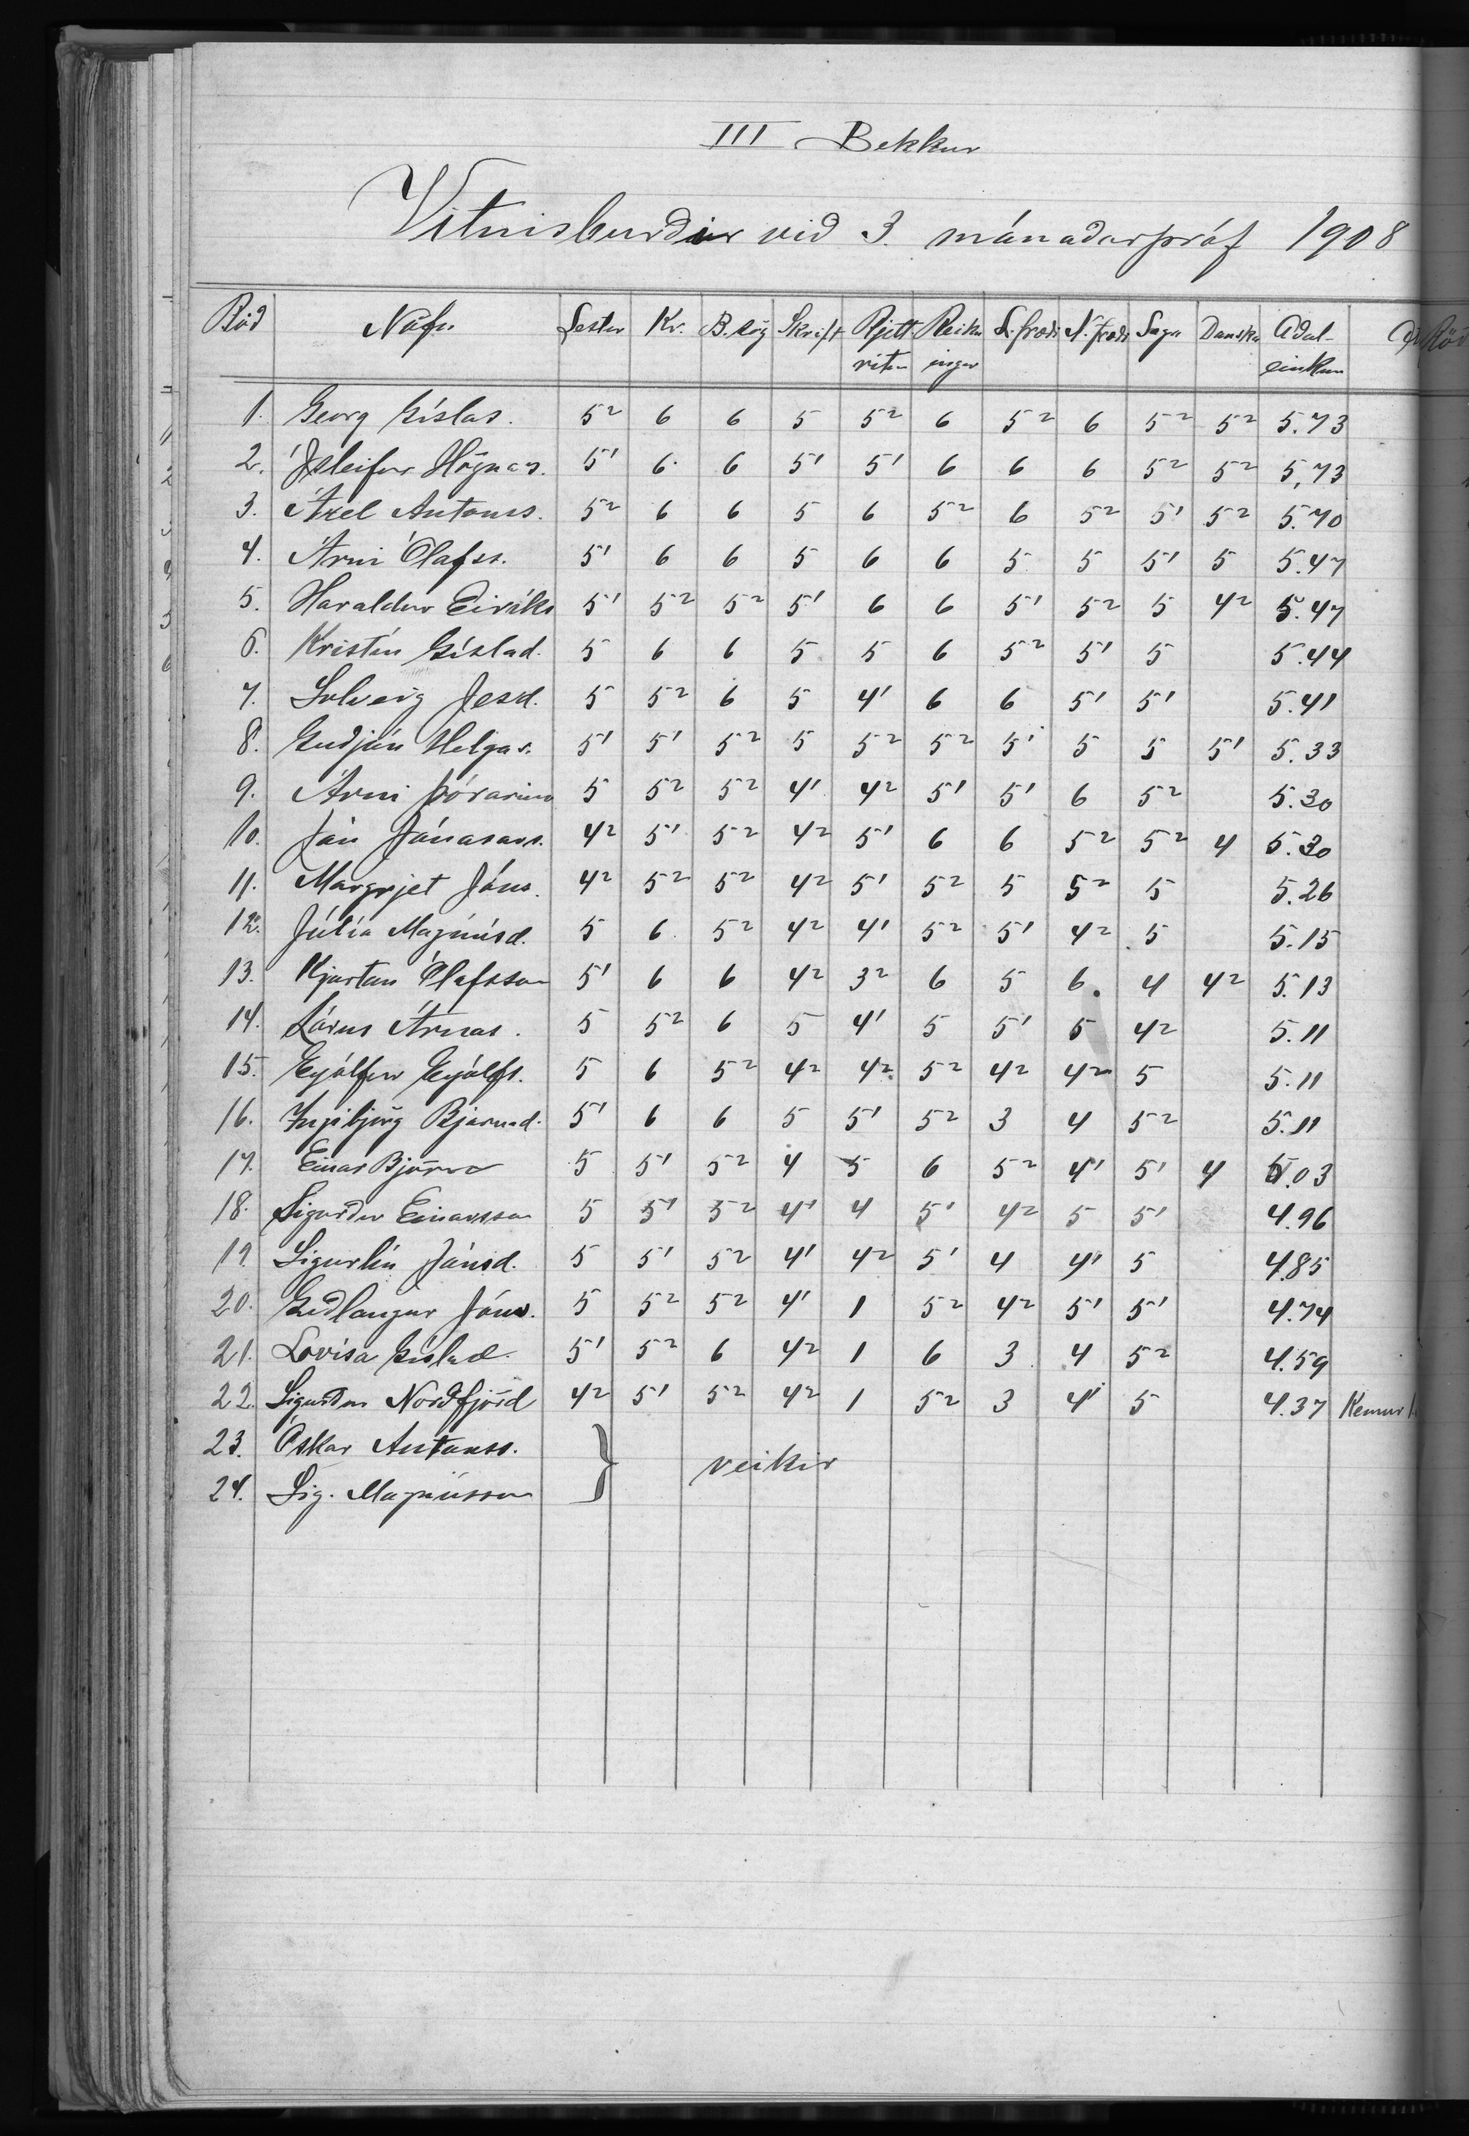 III Bekkur
Vitnisburdir vid 3. mánadarpróf 1908
Röd Nöfn Lestur Kr. B.sög Skrift Rjettritun Reikningur L.frædi N.frædi Saga Danska Adaleinkun
1. Georg Gíslas. 5² 6 6 5 5² 6 5² 6 5² 5² 5.73
2. Ísleifur Högnas. 5¹ 6 6 5¹ 5¹ 6 6 6 5² 5² 5,73
3. Axel Antonss. 5² 6 6 5 6 5² 6 5² 5¹ 5² 5.70
4. Árni Ólafss. 5¹ 6 6 5 6 6 5 5 5¹ 5 5.47
5. Haraldur Eiríks 5¹ 5² 5² 5¹ 6 6 5¹ 5² 5 4² 5.47
6. Kristín Gíslad. 5 6 6 5 5 6 5² 5¹ 5 5.44
7. Solveig Jesd. 5 5² 6 5 4¹ 6 6 5¹ 5¹ 5.41
8. Gudjón Helgas. 5¹ 5¹ 5² 5 5² 5² 5¹ 5 5 5¹ 5.33
9. Árni Þórarins 5 5² 5² 4¹ 4² 5¹ 5¹ 6 5² 5.30
10. Jón Jónasars. 4² 5¹ 5² 4² 5¹ 6 6 5² 5² 4 5.30
11. Margrjet Jóns. 4² 5² 5² 4² 5¹ 5² 5 5² 5 5.26
12. Júlía Magnúsd. 5 6 5² 4² 4¹ 5² 5¹ 4² 5 5.15
13. Kjartan Ólafsson 5¹ 6 6 4² 3² 6 5 6. 4 4² 5.13
14. Lárus Árnas. 5 5² 6 5 4¹ 5 5¹ 5 4² 5.11
15. Eyjólfur Eyjólfs. 5 6 5² 4² 4² 5² 4² 4² 5 5.11
16. Ingibjörg Bjarnad. 5¹ 6 6 5 5¹ 5² 3 4 5² 5.11
17. Einar Björns 5 5¹ 5² 4 5 6 5² 4¹ 5¹ 4 5.03
18. Sigurdur Einarsson 5 5¹ 5² 4¹ 4 5¹ 4² 5 5¹ 4.96
19. Sigurlín Jónsd. 5 5¹ 5² 4¹ 4² 5¹ 4 4¹ 5 4.85
20. Gudlaugur Jóns. 5 5² 5² 4¹ 1 5² 4² 5¹ 5¹ 4.74
21. Lovísa Gíslad. 5¹ 5² 6 4² 1 6 3 4 5² 4.59
22. Sigurdur Nordfjörd 4² 5¹ 5² 4² 1 5² 3 4¹ 5 4.37 Kemur
23. Óskar Antonss. } veikir
24. Sig. Magnússon